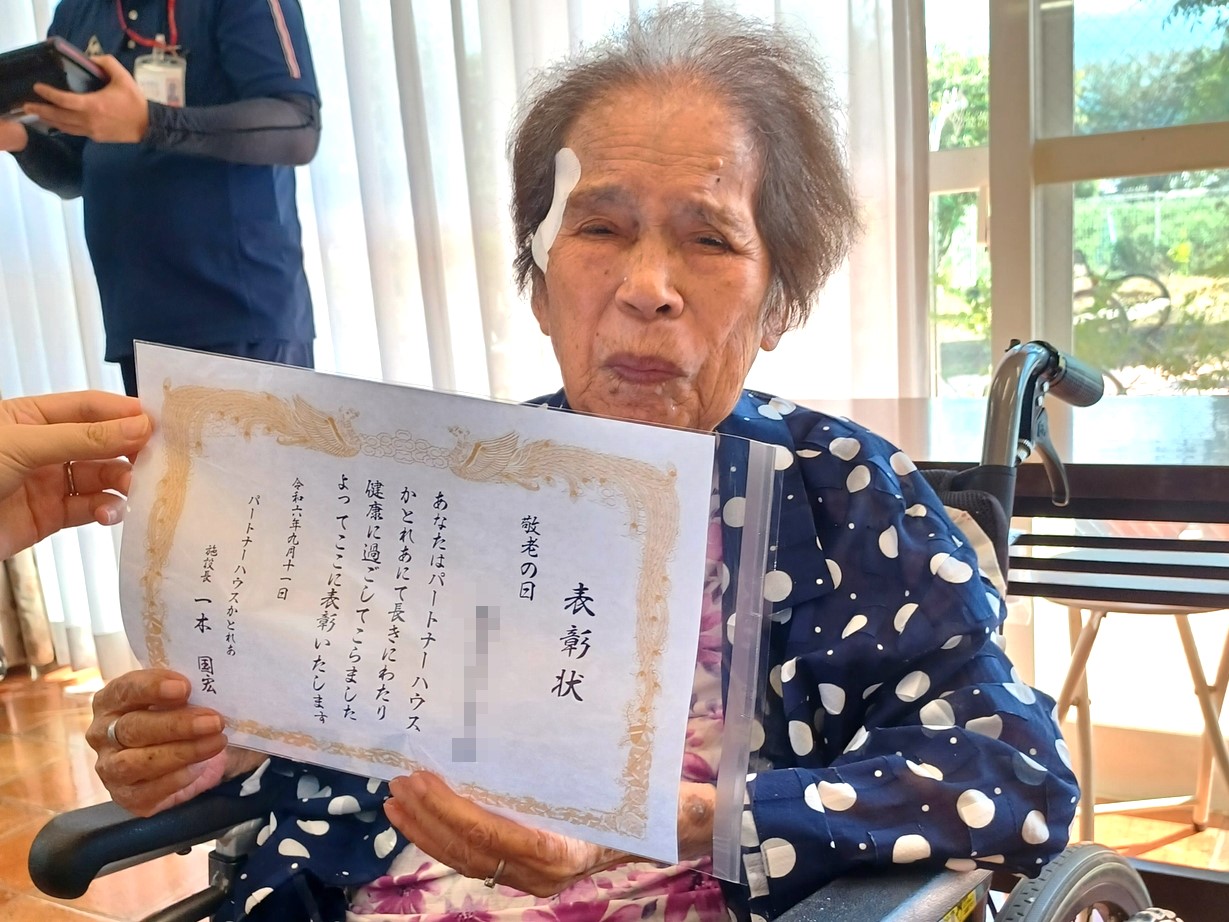 表彰状
敬老の日
あなたはパートナーハウス
かとれあにて長きにわたり
健康に過ごしてこらました
よってここに表彰いたします
令和六年九月十一日
パートナーハウスかとれあ
施設長 一本 国宏